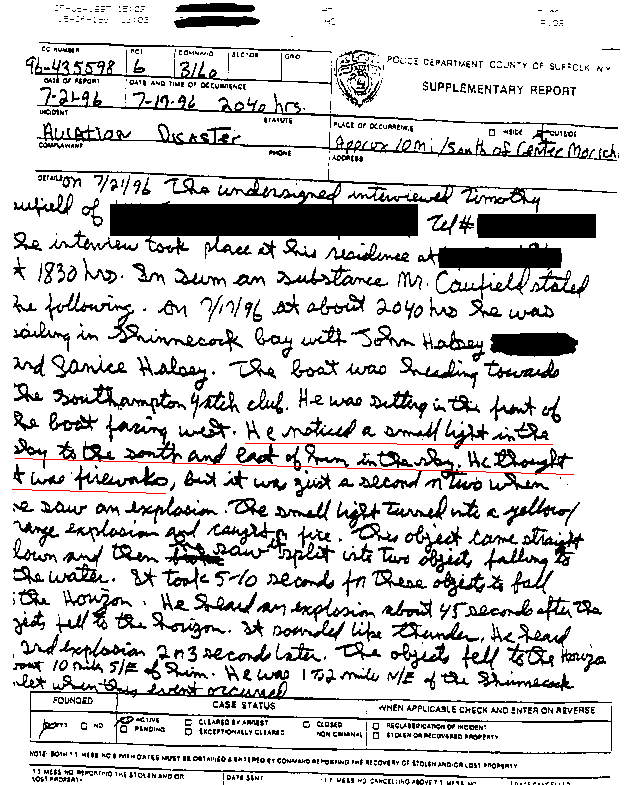 CC NUMBER PCT COMMAND SECTOR GRID
96-435598 6 3160
POLICE DEPARTMENT COUNTY OF SUFFOLK N.Y.
SUPPLEMENTARY REPORT
DATE OF REPORT DATE AND TIME OF OCCURRENCE
7-21-96 7-17-96 2040 hrs.
INCIDENT STATUTE
AVIATION DISASTER
PLACE OF OCCURRENCE INSIDE OUTSIDE
Approx 10 Mi/South of Center Morich
COMPLAINANT PHONE ADDRESS
DETAILS On 7/21/96 The undersigned interviewed Timothy
aufield of Tel#
he interview took place at his residence at
t 1830 hrs. In sum an substance Mr. Caufield stated
he following. On 7/17/96 at about 2040 hrs he was
sailing in Shinnecock bay with John Halsey
and Janice Halsey. The boat was heading towards
The Southampton Yatch club. He was sitting in the front of
he boat facing west. He noticed a small light in the
sky to the south and east of him in the sky. He thought
t was fireworks, but it was just a second or two when
e saw an explosion. The small light turned into a yellow/
range explosion and caught fire. This object came straight
down and then he saw it split into two objects falling to
the water. It took 5-10 seconds for these objects to fall
the Horizon. He heard an explosion about 45 seconds after the
jects fell to the horizon. It sounded like thunder. He heard
2nd explosion 2 or 3 seconds later. The objects fell to the Horizo
out 10 miles S/E of him. He was 1 to 2 miles N/E of the Shinnecock
nlet when this event occured
FOUNDED CASE STATUS WHEN APPLICABLE CHECK AND ENTER ON REVERSE
YES NO ACTIVE CLEARED BY ARREST CLOSED RECLASSIFICATION OF INCIDENT
PENDING EXCEPTIONALLY CLEARED NON CRIMINAL STOLEN OR RECOVERED PROPERTY
NOTE: BOTH T.T. MESS NO'S WITH DATES MUST BE OBTAINED & ENTERED BY COMMAND REPORTING THE RECOVERY OF STOLEN AND/OR LOST PROPERTY
T.T. MESS NO REPORTING THE STOLEN AND/OR DATE SENT T.T. MESS NO CANCELLING ABOVE T.T. MESS DATE CANCELLED
LOST PROPERTY